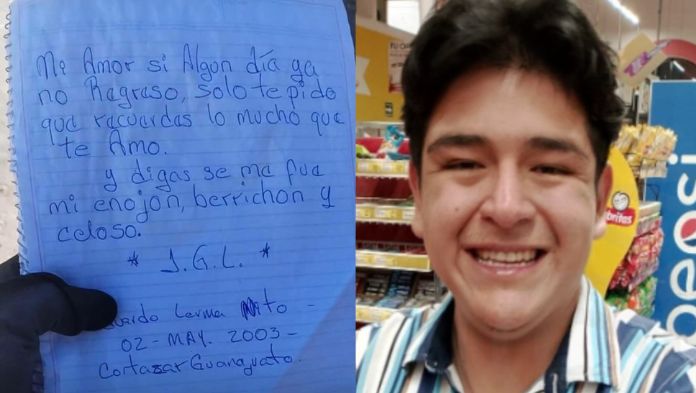 Mi Amor si Algun día ya
no Ragraso, solo te pido
que racuardas lo mucho que
te Amo.
y digas se ma fua
mi enojon, berrichon y
celoso.
* J.G.L. *
Lerma Nto -
02 - MAY. 2003 -
Cortazar Guanajuato.
TU CH
pepsi
britas